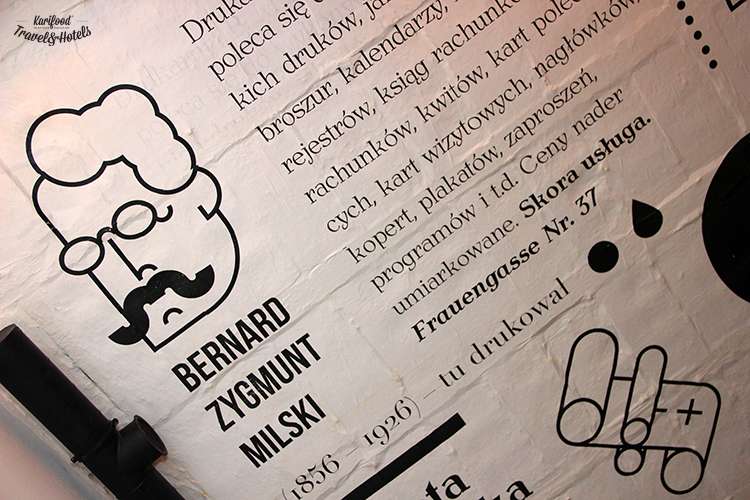 Karifood
Travel&Hotels
Druka
poleca się
kich druków,
broszur, kalendarzy,
rejestrów, ksiąg rachunko
rachunków, kwitów, kart polec
cych, kart wizytowych, nagłówków,
kopert, plakatów, zaproszeń,
programów i td. Ceny nader
umiarkowane. Skora usługa.
Frauengasse Nr. 37
BERNARD
ZYGMUNT
MILSKI
(1856 – 1926) – tu drukował
ta
ka